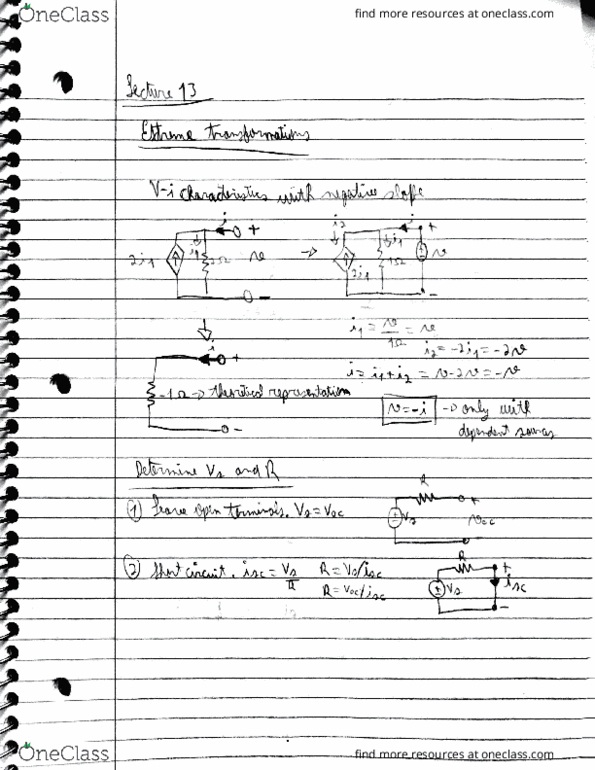 OneClass find more resources at oneclass.com
Lecture 13
Extreme transformations
V-i characteristics with negative slope
i + i2 i +
2i1 i1 v → i1 v
2i1 1Ω
- -
i1 = v/1Ω = v
i2 = -2i1 = -2v
i = i1 + i2 = v - 2v = -v
i +
-1Ω → theoretical representation
-
v = -i → only with
dependent sources
Determine Vs and R
① Leave open terminals. Vs = Voc
R + Vs voc -
② Short circuit. isc = Vs/R R = Vs/isc
R = Voc/isc
R + Vs isc -
OneClass find more resources at oneclass.com